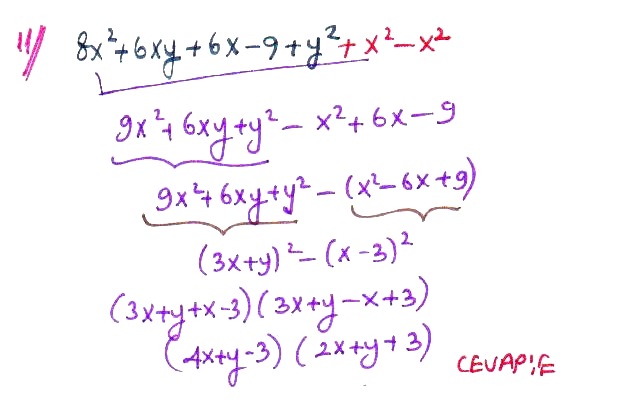 11/ 8x²+6xy+6x-9+y²+x²-x²
9x²+6xy+y²-x²+6x-9
9x²+6xy+y²-(x²-6x+9)
(3x+y)²-(x-3)²
(3x+y+x-3)(3x+y-x+3)
(4x+y-3)(2x+y+3) CEVAP:E